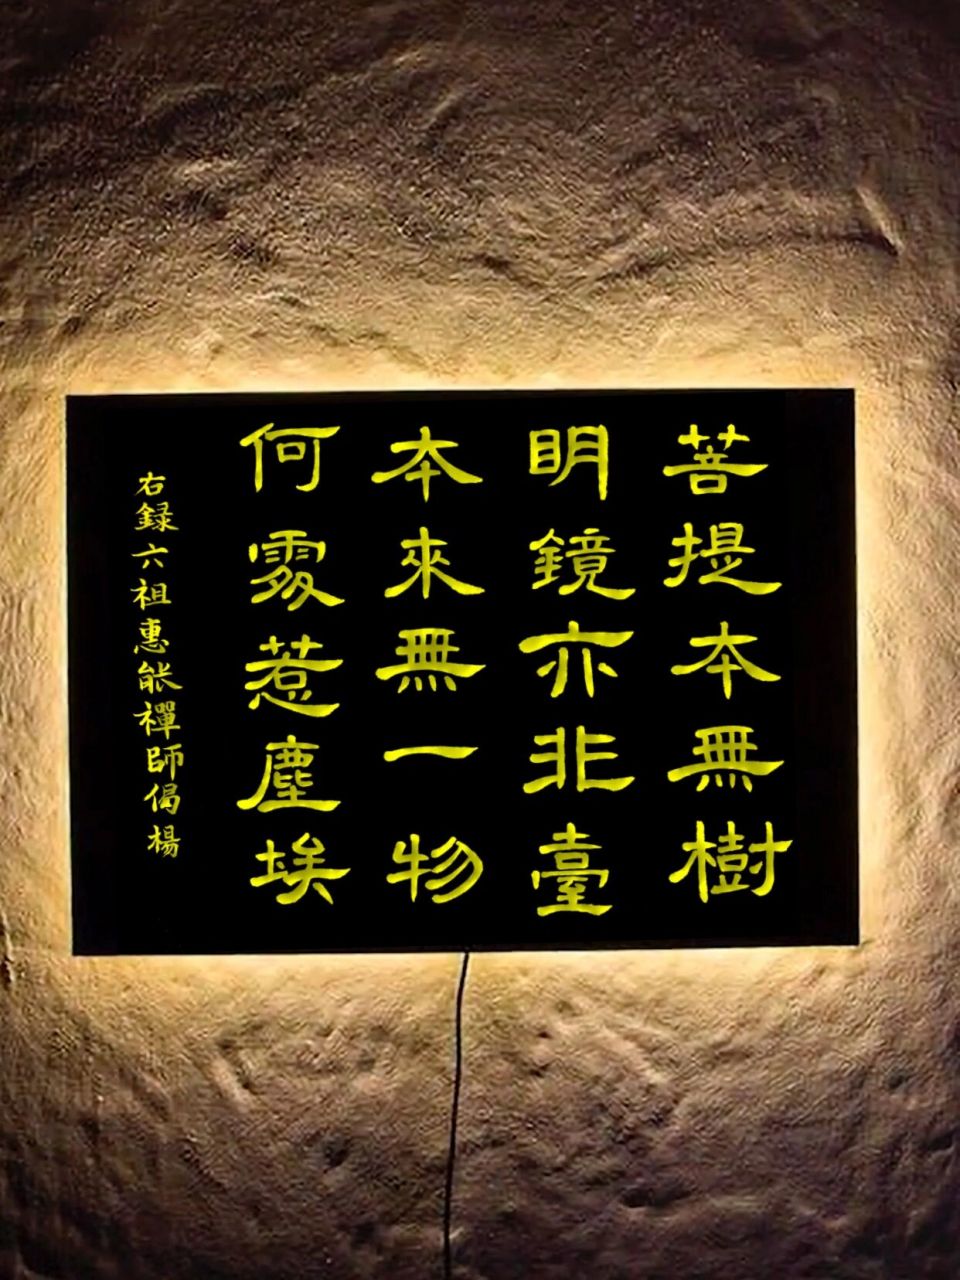 菩提本無樹
明鏡亦非臺
本來無一物
何處惹塵埃
右録六祖惠能禪師偈楊